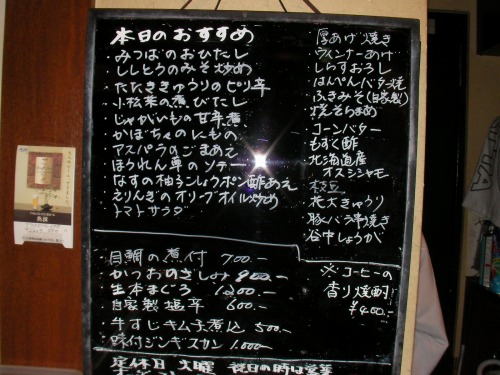 本日のおすすめ
・みつばのおひたし
・ししとうのみそ炒め
・たたききゅうりのピリ辛
・小松菜の煮びたし
・じゃがいもの甘辛煮
・かぼちゃのにもの
・アスパラのごまあえ
・ほうれん草のソテー
・なすの柚子こしょうポン酢あえ
・えりんぎのオリーブオイル炒め
・トマトサラダ
・目鯛の煮付 700.-
・かつおのさしみ 800.-
・生本まぐろ 1200.-
・自家製塩辛 600.-
・牛すじキムチ煮込 500.-
・味付ジンギスカン 1.000-
定休日 火曜 祝日の時は営業
厚あげ焼き
ウィンナーあげ
しらすおろし
はんぺんバター焼
ふきみそ(自家製)
焼そらまめ
コーンバター
もずく酢
北海道産
オスシシャモ
枝豆
花大きゅうり
豚バラ串焼き
谷中しょうが
※コーヒーの
香り焼酎
¥400.-